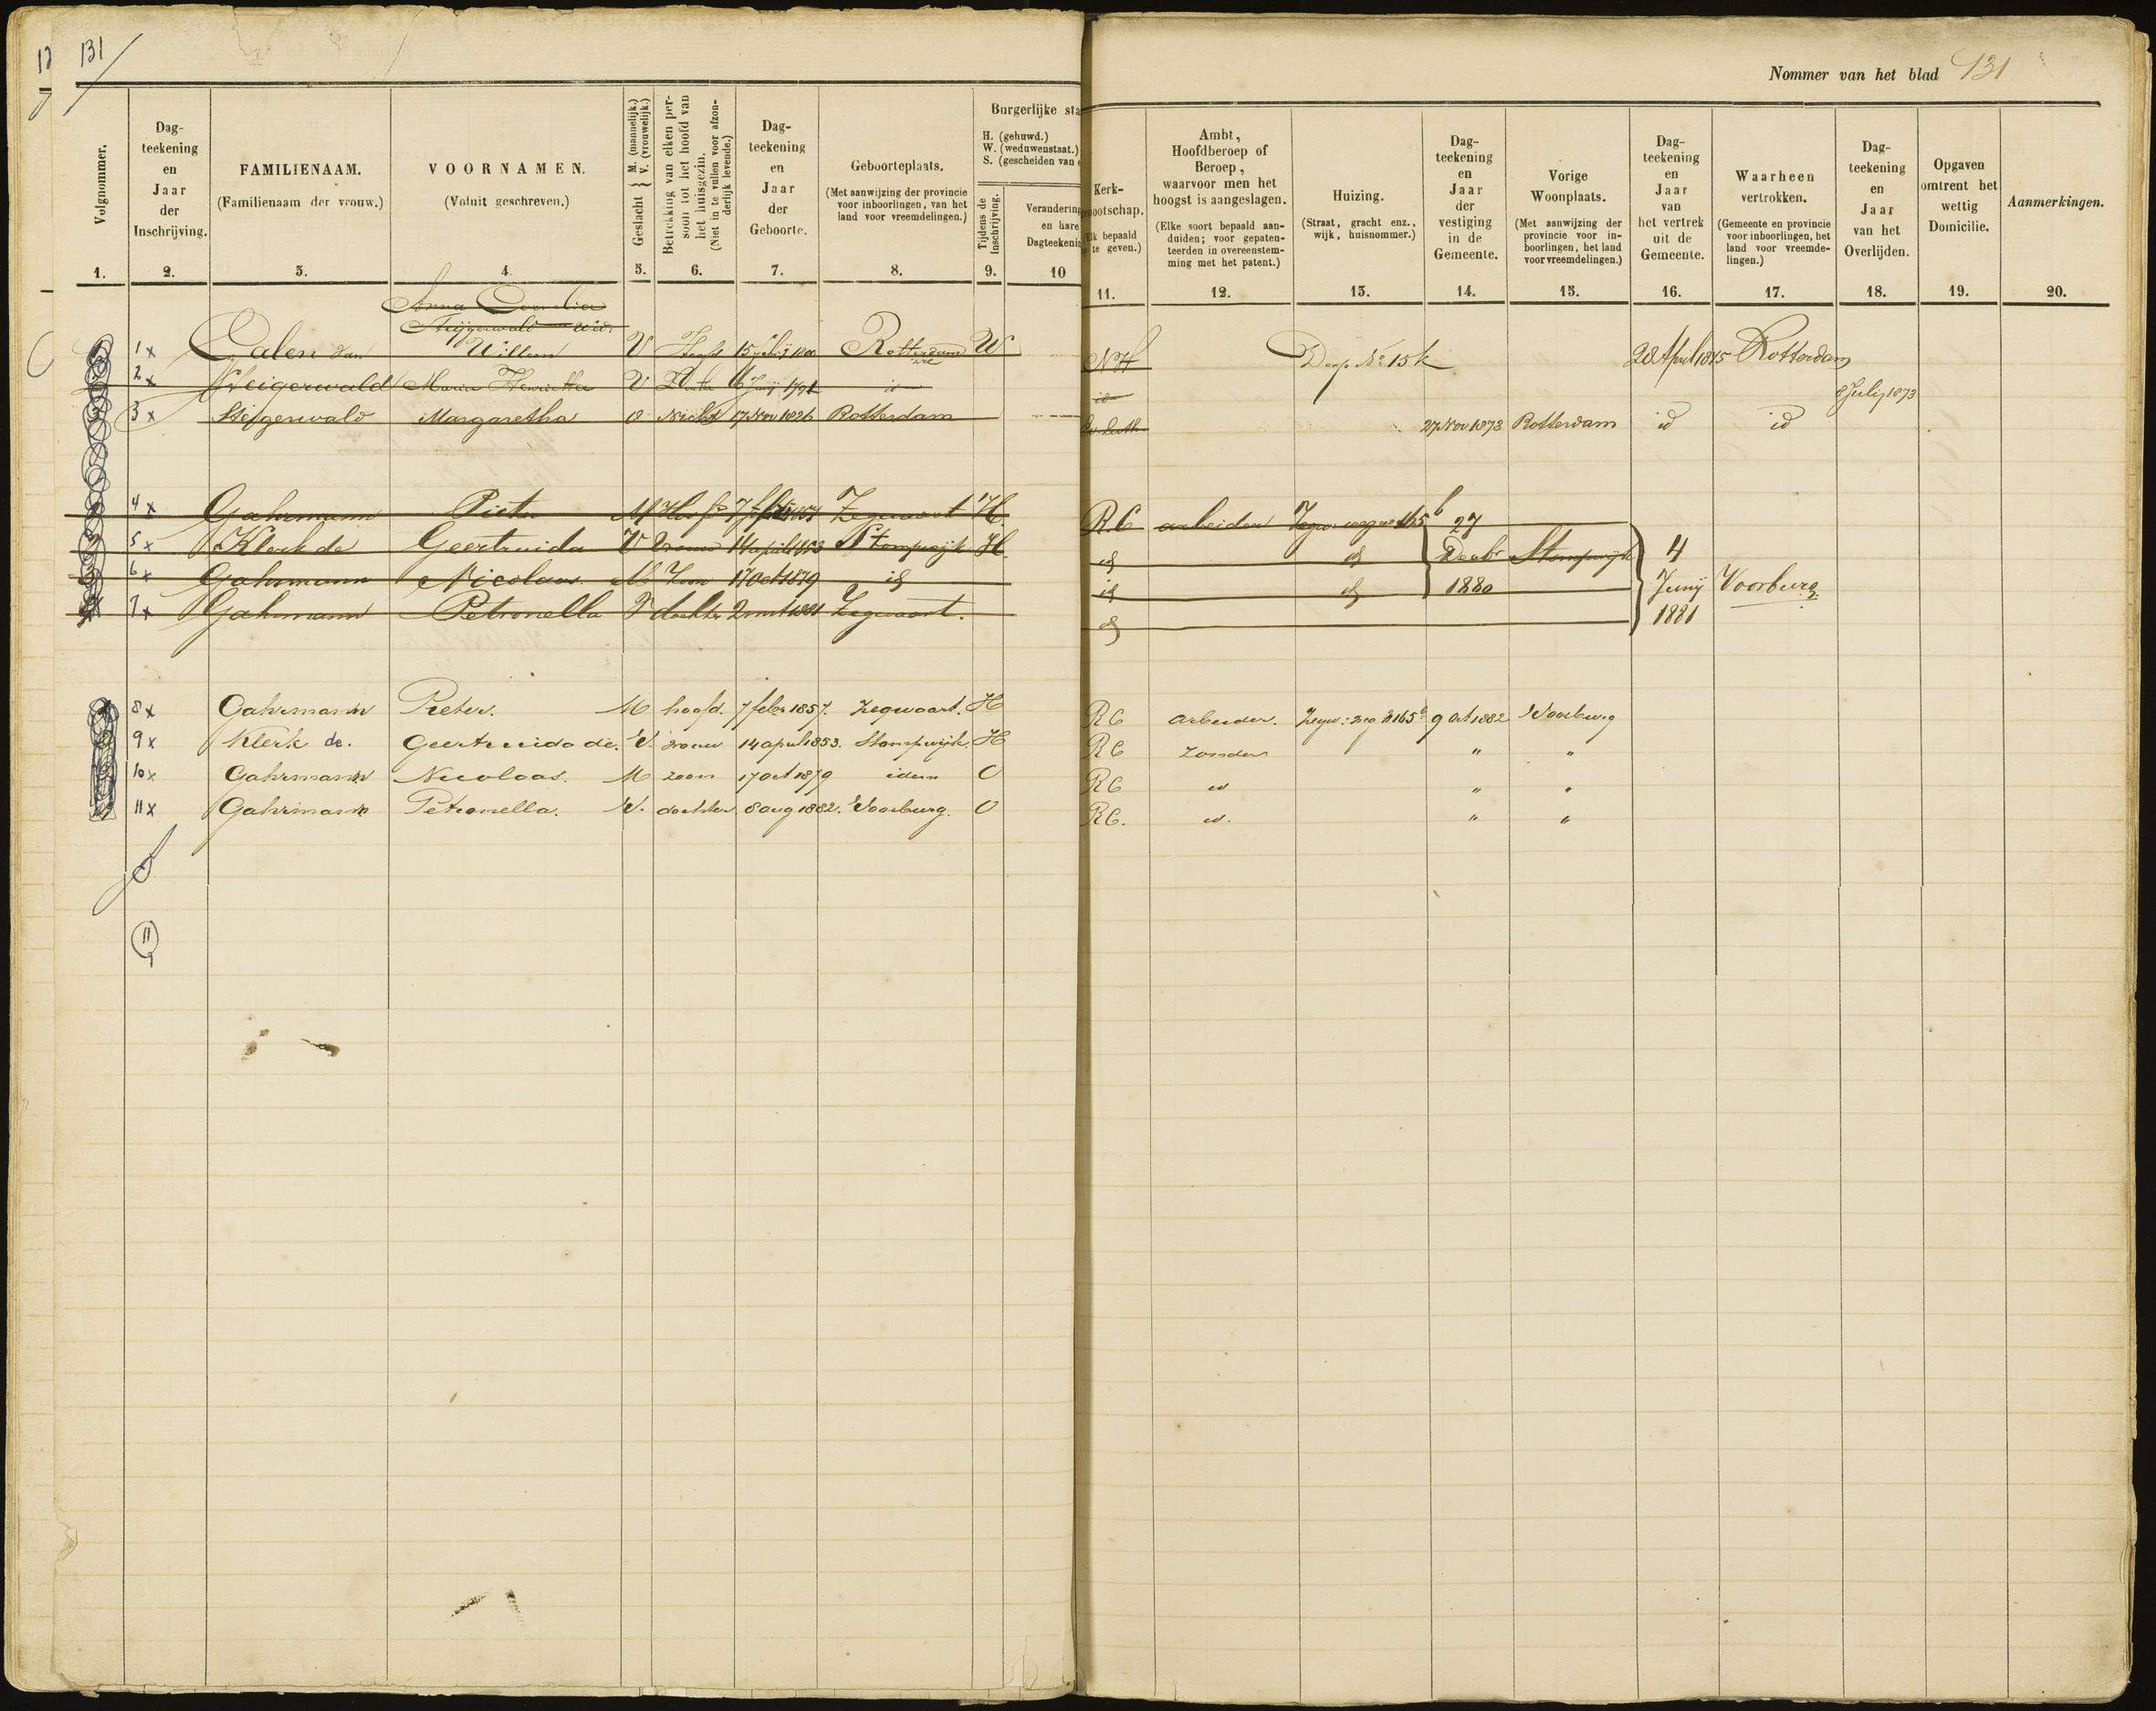 131
Nommer van het blad 131
Volgnommer.
Dag-
teekening
en
Jaar
der
Inschrijving.
FAMILIENAAM.
(Familienaam der vrouw.)
VOORNAMEN.
(Voluit geschreven.)
Geslacht { M. (mannelijk.) V. (vrouwelijk.)
Betrekking van elken per-
soon tot het hoofd van
het huisgezin.
(Niet in te vullen voor afzon-
derlijk levende.)
Dag-
teekening
en
Jaar
der
Geboorte.
Geboorteplaats.
(Met aanwijzing der provincie
voor inboorlingen, van het
land voor vreemdelingen.)
Burgerlijke sta
H. (gehuwd.)
W. (weduwenstaat.)
S. (gescheiden van
Tijdens de
Inschrijving.
Verandering
en hare
Dagteekenin
Kerk-
nootschap.
Elk bepaald
te geven.)
Ambt,
Hoofdberoep of
Beroep,
waarvoor men het
hoogst is aangeslagen.
(Elke soort bepaald aan-
duiden; voor gepaten-
teerden in overeenstem-
ming met het patent.)
Huizing.
(Straat, gracht enz.,
wijk, huisnommer.)
Dag-
teekening
en
Jaar
der
vestiging
in de
Gemeente.
Vorige
Woonplaats.
(Met aanwijzing der
provincie voor in-
boorlingen, het land
voor vreemdelingen.)
Dag-
teekening
en
Jaar
van
het vertrek
uit de
Gemeente.
Waarheen
vertrokken.
(Gemeente en provincie
voor inboorlingen, het
land voor vreemde-
lingen.)
Dag-
teekening
en
Jaar
van het
Overlijden.
Opgaven
omtrent het
wettig
Domicilie.
Aanmerkingen.
1. 2. 3. 4. 5. 6. 7. 8. 9. 10 11. 12. 13. 14. 15. 16. 17. 18. 19. 20.
Anna Cornelia
Steijgerwald wed.
1x Calen van Willem V Hoofd Rotterdam W NH Dorp No 15k 28 April 1875 Rotterdam
2x Steigerwald Maria Henrietta V id id 8 Julij 1873
3x Steigerwald Margaretha V Nicht 17 Nov 1826 Rotterdam Ev. Luth 27 Nov 1873 Rotterdam id id
4x Gahrmann Pieter M Hoofd Zegwaart H. RC arbeider Zegw: weg no 165 b 27
5x Klerk de Geertruida V Vrouw 14 april 1853 Stompwijk H. id id Decbr Stompwijk 4
6x Gahrmann Nicolaas M Zoon 17 Oct 1879 id id id 1880 Junij Voorburg.
7x Gahrmann Petronella V dochter 2 mrt 1881 Zegwaart. id 1881
8x Gahrmann Pieter. M hoofd. 7 febr 1857. Zegwaart. H RC arbeider. Zegw: weg No 165 b 9 Oct 1882 Voorburg
9x Klerk de. Geertruida de. V. vrouw 14 april 1853. Stompwijk. H RC zonder " "
10x Gahrmann Nicolaas. M zoon 17 Oct 1879 idem O RC id " "
11x Gahrmann Petronella. V. dochter 8 aug 1882. Voorburg. O RC. id. " "
11